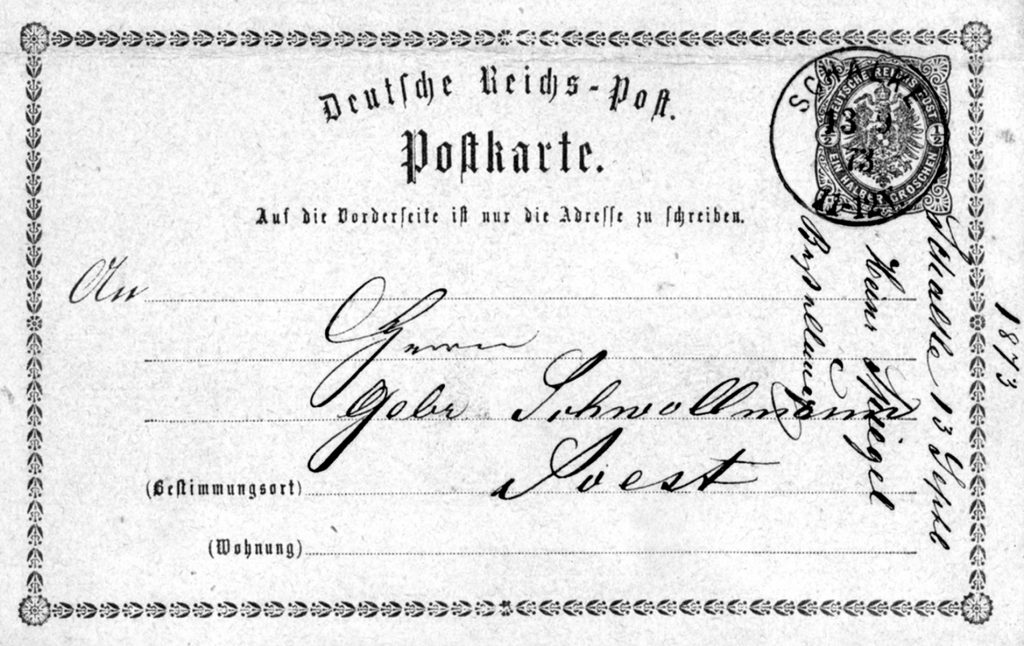 Deutsche Reichs-Post.
Postkarte.
Auf die Vorderseite ist nur die Adresse zu schreiben.
SCHALKE
13 9
73
11-12
DEUTSCHE REICHS POST
1/2 1/2
EIN HALBER GROSCHEN
An
Herrn
Gebr Schwollmann
(Bestimmungsort) Soest
(Wohnung)
Schalke 13 Septb
1873
Heinr Spiegel